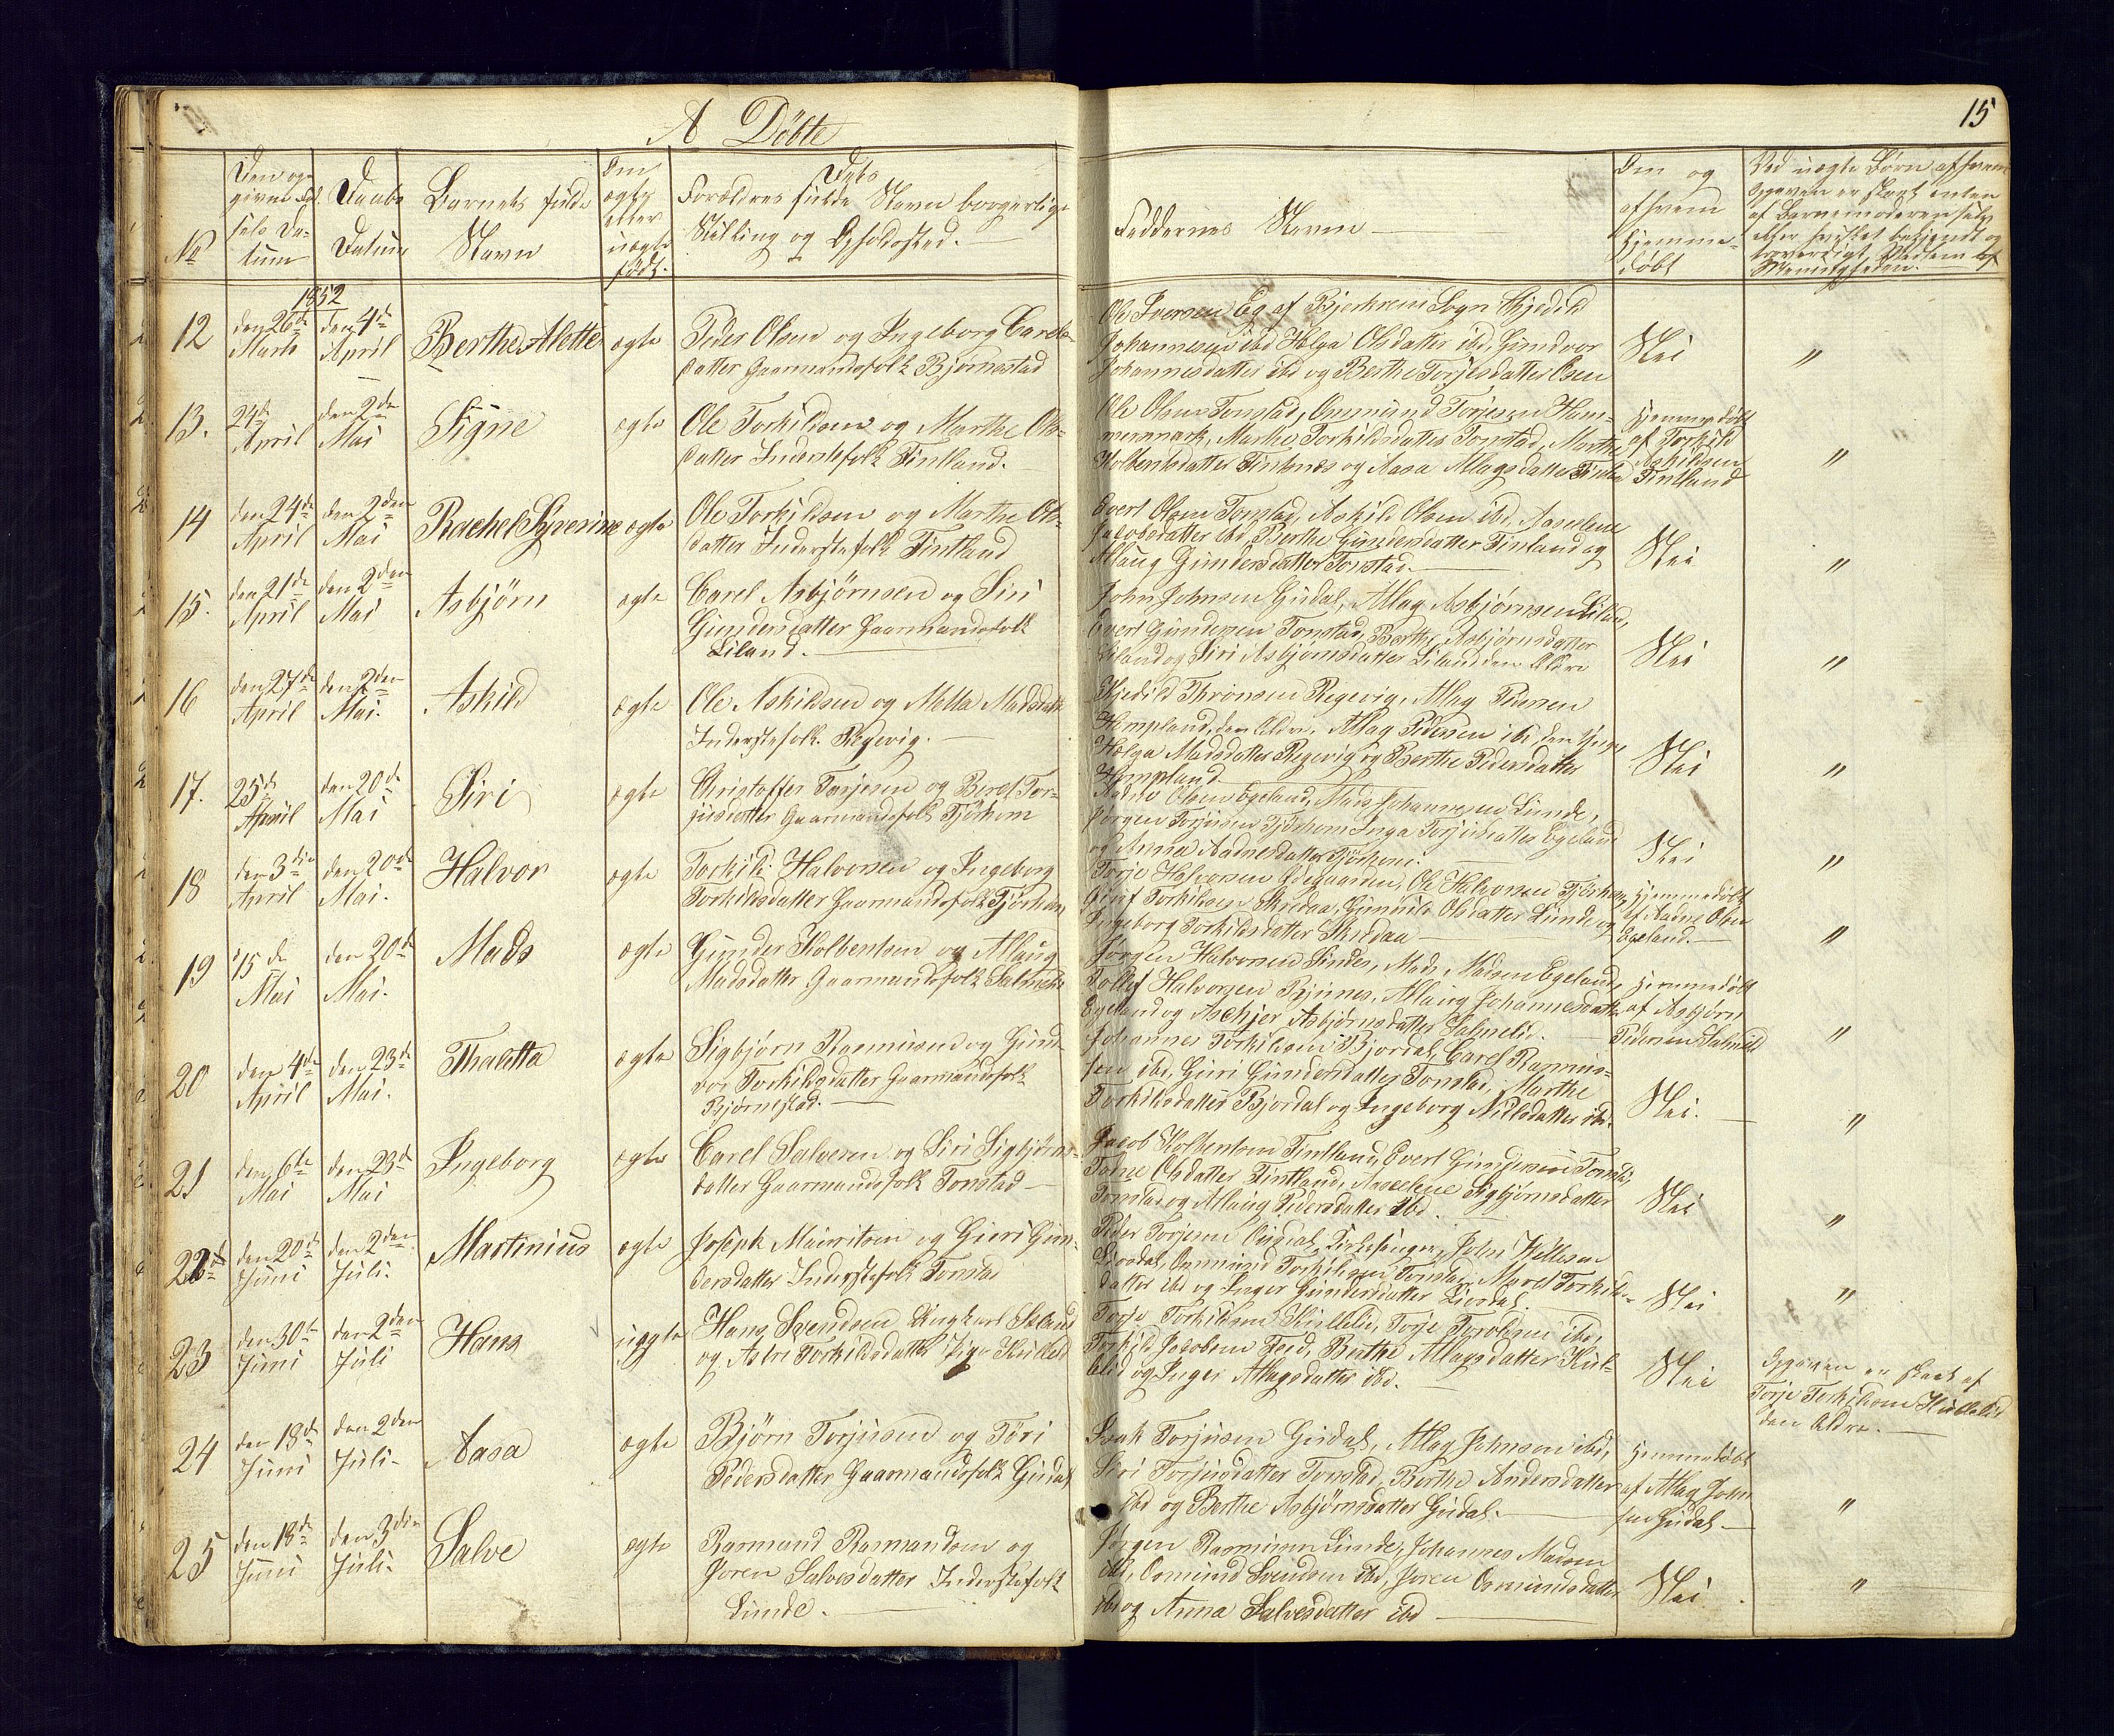 15
A Döbte
No
Den op-
givne Fød-
sels Da-
tum
Daabs
Datum
Barnets fulde
Navn
Om
ægte
eller
uægte
født.
Dets
Forældres fulde Navn borgerlige
Stilling og Opholdssted.
Faddernes Navne
Om og
af hvem
hjemme-
døbt
Ved uægte Børn af hvem
Opgaven er skeet enten
af Barnemoderen selv
eller hvilket bekjendt og
troværdigt Medlem af
Menigheden.
1852
12
den 26de
Marts
den 4de
April
Berthe Alette
ægte
Peder Olsen og Ingeborg Carels-
datter Gaarmandsfolk Bjørnestad
Ole Iversen Eg af Bjerkreim Sogn Kjedild
Johannesen ibd Helga Olsdatter ibd, Gundvor
Johannesdatter ibd og Berthe Torjesdatter Osen
Nei
"
13.
24de
April
den 2den
Mai
Signe
ægte
Ole Torkildsen og Marthe Ols-
datter Inderstefolk Fintland.
Ole Olsen Tonstad, Ommund Torjesen Ham-
mermark, Marthe Torkildsdatter Tonstad, Marthe
Kolbentsdatter Fintnæs og Aasa Atlagsdatter
Hjemmedøbt
af Torkild
Askildsen
Fintland
"
14
den 24de
April
den 2den
Mai
Rachel Syverine
ægte
Ole Torkildsen og Marthe Ols-
datter Inderstefolk Fintland
Evert Olsen Tonstad, Askild Olsen ibd, Aaselene
Jacobsdatter ibd, Berthe Gundersdatter Finland og
Atlaug Gundersdatter Tonstad.
Nei
"
15.
den 21de
April
den 2den
Mai
Asbjørn
ægte
Carel Asbjørnsen og Siri
Gundersdatter Gaarmandsfolk
Liland.
John Johnsen Gudal, Atlag Asbjørnsen Liland,
Evert Gundersen Tonstad, Berthe Asbjørnsdatter
Liland og Siri Asbjørnsdatter Liland den Ældre
Nei
"
16
den 27de
April
den 2den
Mai.
Askild
ægte
Ole Askildsen og Metta Madsdatter
Inderstefolk Regevig.
Kjedild Thronsen Regevig, Atlag Pedersen
Hompland den Ældre, Atlag Pedersen ibd den Yngre
Helga Madsdatter Regevig og Berthe Pedersdatter
Hompland
Nei
"
17.
25de
April
den 20de
Mai
Siri
ægte
Christoffer Torjesen og Beret Tor-
jusdatter Gaarmandsfolk Tjørhom
Aadne Olsen Egeland, Mads Johannesen Lunde,
Jørgen Torjusen Tjørhom Inga Torjusdatter Egeland
og Anna Aadnesdatter Tjørhom.
Nei
"
18
den 3die
April
den 20de
Mai.
Halvor
ægte
Torkild Halvorsen og Ingeborg
Torkildsdatter Gaarmandsfolk Tjørhom
Torje Halvorsen Ødegaarden, Ole Halvorsen Tjørhom,
Torkildsen Skredaa, Gunnild Olsdatter Lunde og
Ingeborg Torkildsdatter Skredaa
Hjemmedøbt
af Aadne Olsen
Egeland.
"
19
15de
Mai
den 20de
Mai.
Mads
ægte
Gunder Kolbentsen og Atlaug
Madsdatter Gaarmandsfolk Salmelid
Jørgen Halvorsen Sinnes, Mads Nilsen Egeland,
Tollef Halvorsen Rjunes, Atlaug Johannesdatter
Egeland og Aschjer Asbjørnsdatter Salmelid.
Hjemmedøbt
af Asbjørn
Pedersen Salmelid
"
20
den 4de
April
den 23de
Mai.
Thaletta
ægte
Sigbjørn Rasmusen og Gund-
vor Torkildsdatter Gaarmandsfolk
Bjørnestad.
Johannes Torkildsen Bjordal, Carel Rasmus-
sen ibd, Guri Gundersdatter Tonstad, Marthe
Torkildsdatter Bjordal og Ingeborg Nilsdatter ibd.
Nei.
"
21
den 6te
Mai
den 23de
Mai
Ingeborg
ægte
Carel Salvesen og Siri Sigbjørns-
datter Gaarmandsfolk Tonstad
Jacob Kolbentsen Fintland, Evert Gundersen Tonstad,
Tonee Olsdatter Fintland, Aaselene Sigbjørnsdatter
Tonstad og Atlaug Pedersdatter ibd.
Nei
"
22
den 20de
Juni
den 2den
Juli.
Martinius
ægte
Joseph Mauritsen og Guri Gun-
dersdatter Inderstefolk Tonstad
Peder Torjesen Ousdal, Kirkesanger, John
Liosdal, Ommund Torkildsen Tonstad, Maret Torkilds-
datter ibd og Inger Gundersdatter Liosdal.
Nei
"
23
den 30te
Juni
den 2den
Juli
Hans
uægte
Hans Svendsen Ungkarl
og Astri Torkildsdatter Pige Huslelid
Torje Torkildsen Huslelid, Torje Toroldsen ibd,
Torkild Jacobsen Feed, Berthe Atlagsdatter Hus-
lelid og Inger Atlagsdatter ibd.
Nei
Opgaven er skeet af
Torje Torkildsen Huslelid
den Ældre.
24
den 18de
Juni
den 2den
Juli.
Aasa
ægte
Bjørn Torjusen og Tori
Pedersdatter Gaarmandsfolk Gudal
Isak Torjusen Gudal, Atlag Johnsen ibd,
Siri Torjusdatter Tonstad, Berthe Andersdatter
ibd og Berthe Asbjørnsdatter Gudal.
Hjemmedøbt
af Atlag John
sen Gudal
"
25
den 18de
Juni
den 3die
Juli.
Salve
ægte
Rasmund Rasmundsen og
Joren Salvesdatter Inderstefolk
Lunde.
Jørgen Rasmusen Lunde, Johannes Madsen
ibd, Osmund Svendsen ibd, Joren Osmundsdatter
ibd og Anna Salvesdatter ibd
Nei
"